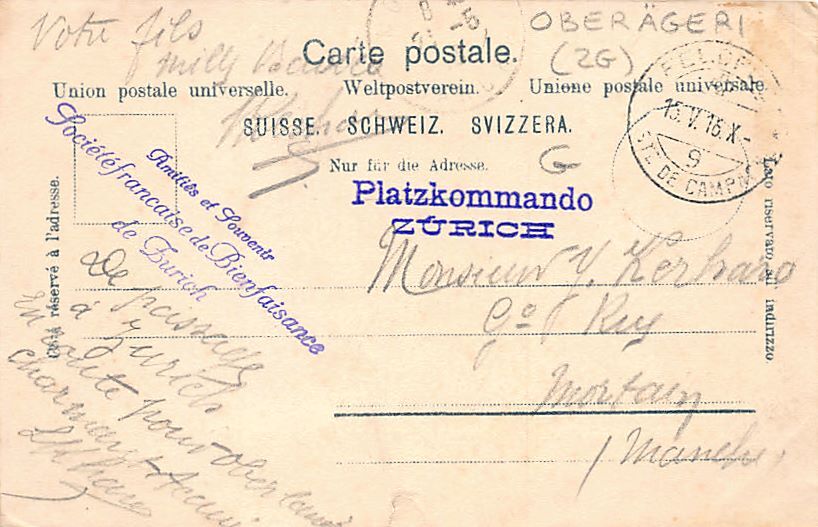 Votre fils
milles
OBERÄGERI
(ZG)
Carte postale.
Union postale universelle. Weltpostverein. Unione postale universale.
SUISSE. SCHWEIZ. SVIZZERA.
Nur für die Adresse.
G
15.V.16.X-
9
STE DE CAMP
Côté réservé à l'adresse.
Lato riservato all'indirizzo.
Amitiés et Souvenir
Société française de Bienfaisance
de Zurich
Platzkommando
ZÜRICH
Monsieur Y. Kerharo
Mortain
(Manche)
De passage
à Zurich
En route pour
charmant